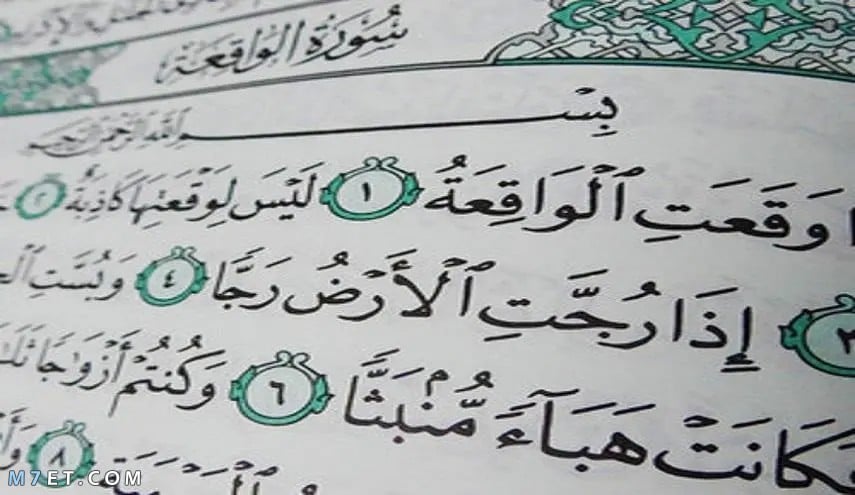 سُورَةُ الوَاقِعَةِ
بِسْمِ اللَّهِ الرَّحْمَٰنِ الرَّحِيمِ
وَقَعَتِ ٱلْوَاقِعَةُ ١ لَيْسَ لِوَقْعَتِهَا كَاذِبَةٌ ٢
٣ إِذَا رُجَّتِ ٱلْأَرْضُ رَجًّا ٤ وَبُسَّتِ
فَكَانَتْ هَبَآءً مُّنۢبَثًّا ٦ وَكُنتُمْ أَزْوَاجًا
٨
M7ET.COM